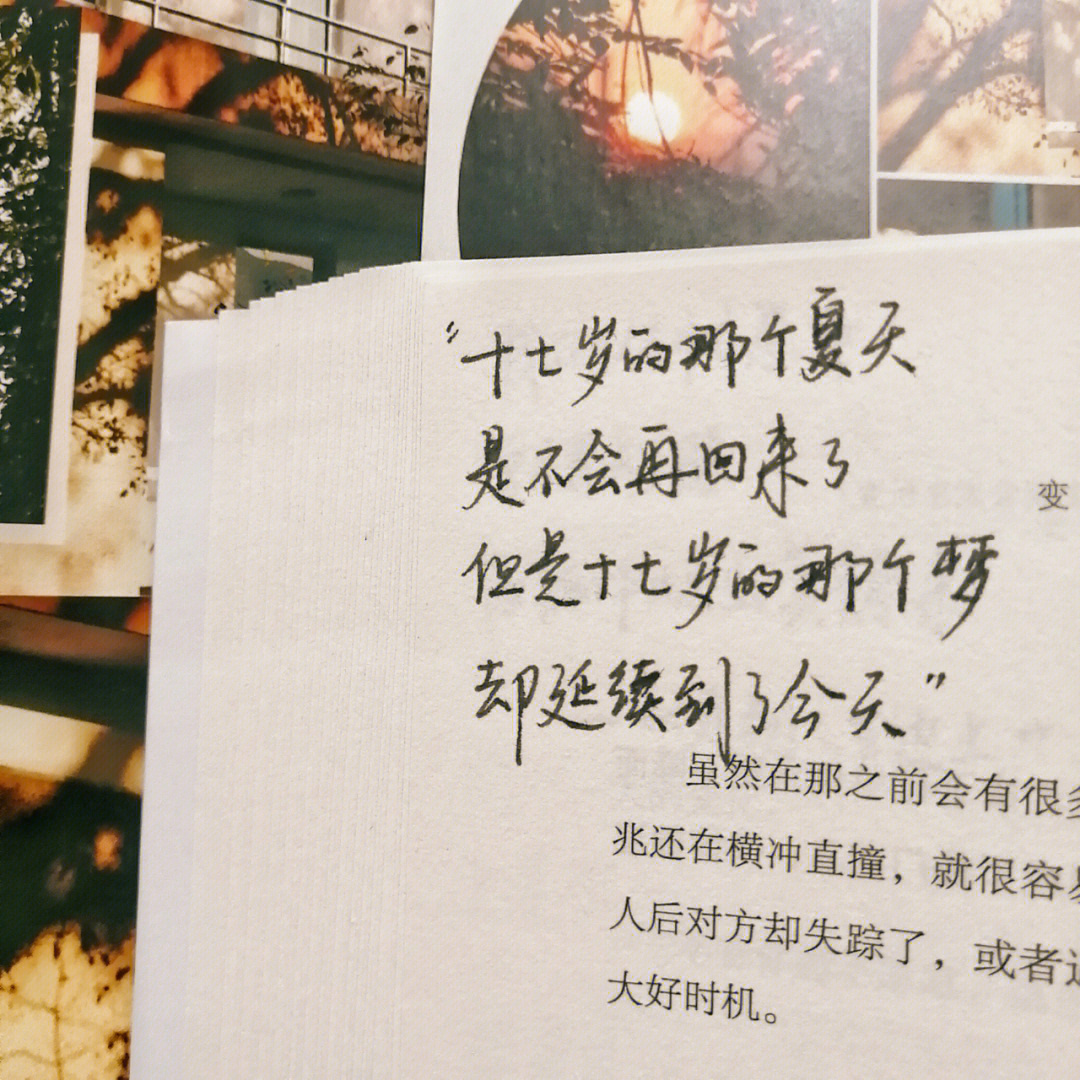 “十七岁的那个夏天
是不会再回来了
变
但是十七岁的那个梦
却延续到了今天”
虽然在那之前会有很多
兆还在横冲直撞，就很容易
人后对方却失踪了，或者这
大好时机。